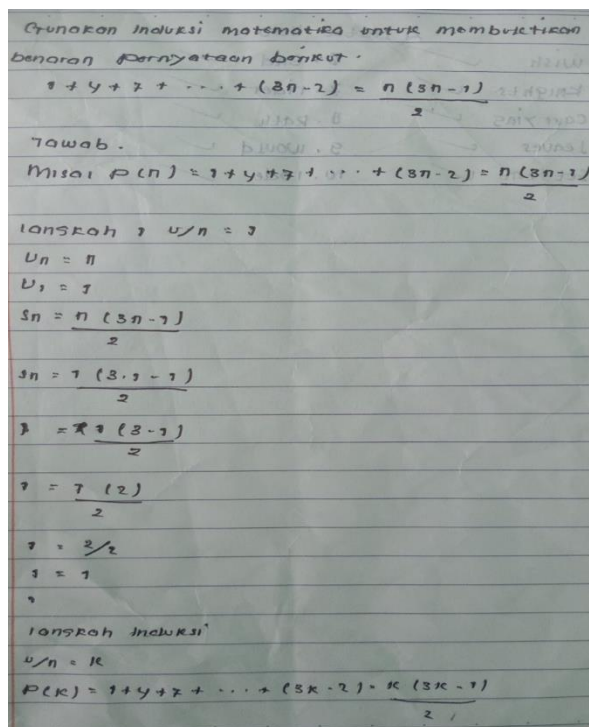 Gunakan Induksi matematika untuk membuktikan
benaran pernyataan berikut.
1 + 4 + 7 + ... + (3n-2) = n (3n-1)/2
Jawab.
Misal P(n) = 1 + 4 + 7 + ... + (3n-2) = n (3n-1)/2
langkah 1 u/n = 1
Un = n
U1 = 1
Sn = n (3n-1)/2
Sn = 1 (3.1-1)/2
1 = 1 (3-1)/2
1 = 1 (2)/2
1 = 2/2
1 = 1
langkah Induksi
u/n = k
P(k) = 1 + 4 + 7 + ... + (3k-2) = k (3k-1)/2